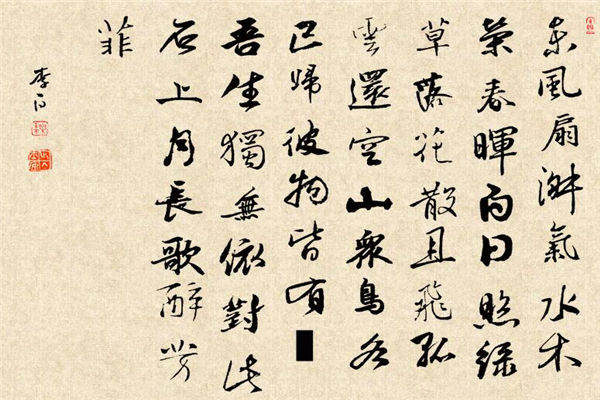 东風扇淑氣水木
荣春暉白日照緑
草落花散且飛孤
雲還空山眾鳥各
已歸彼物皆有
吾生獨無依對此
石上月長歌醉芳
菲
李白